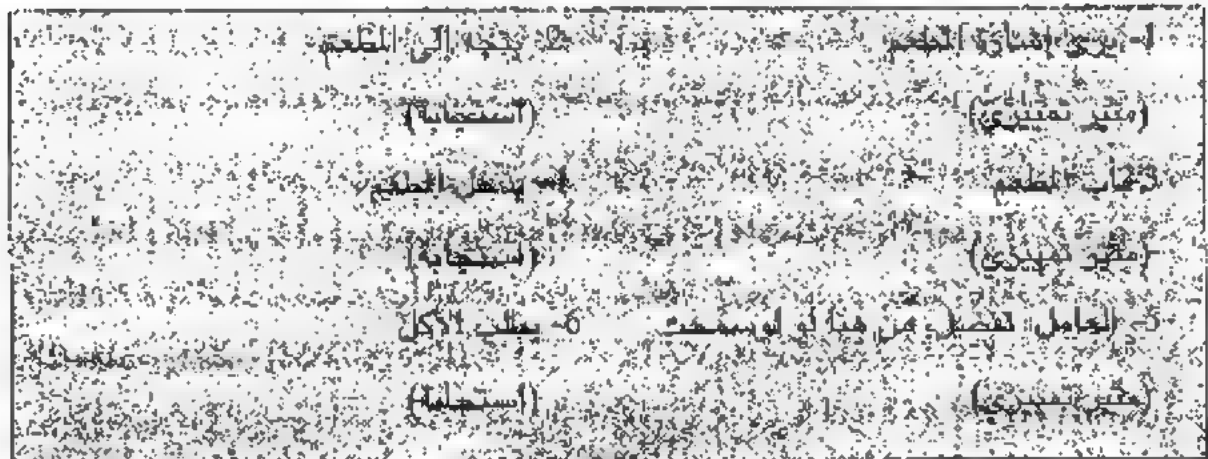 1- يرى إشارة المطعم 2- يتجه إلى المطعم
(مثير تمييزي) (استجابة)
3- باب المطعم 4- يدخل المطعم
(مثير تمييزي) (استجابة)
5- العامل: تفضل من هنا لو لو سمحت 6- يطلب الأكل
(مثير تمييزي) (استجابة)